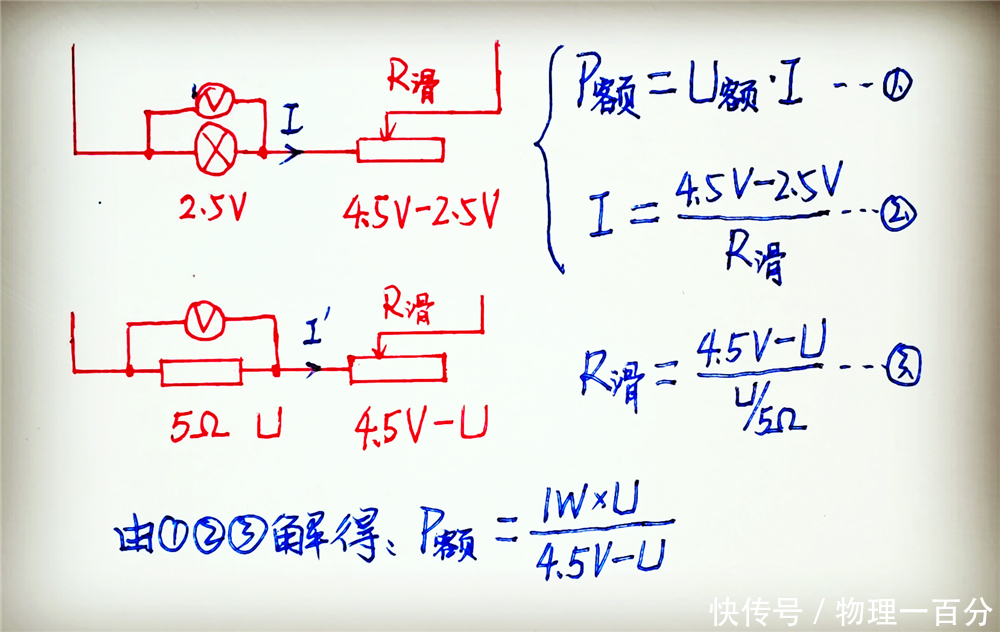 R滑
V
I
2.5V
4.5V-2.5V
P额=U额·I ---①
I=(4.5V-2.5V)/R滑 ---②
R滑
V
I'
5Ω U
4.5V-U
R滑=(4.5V-U)/(U/5Ω) ---③
由①②③解得:P额=(1W×U)/(4.5V-U)
快传号/物理一百分